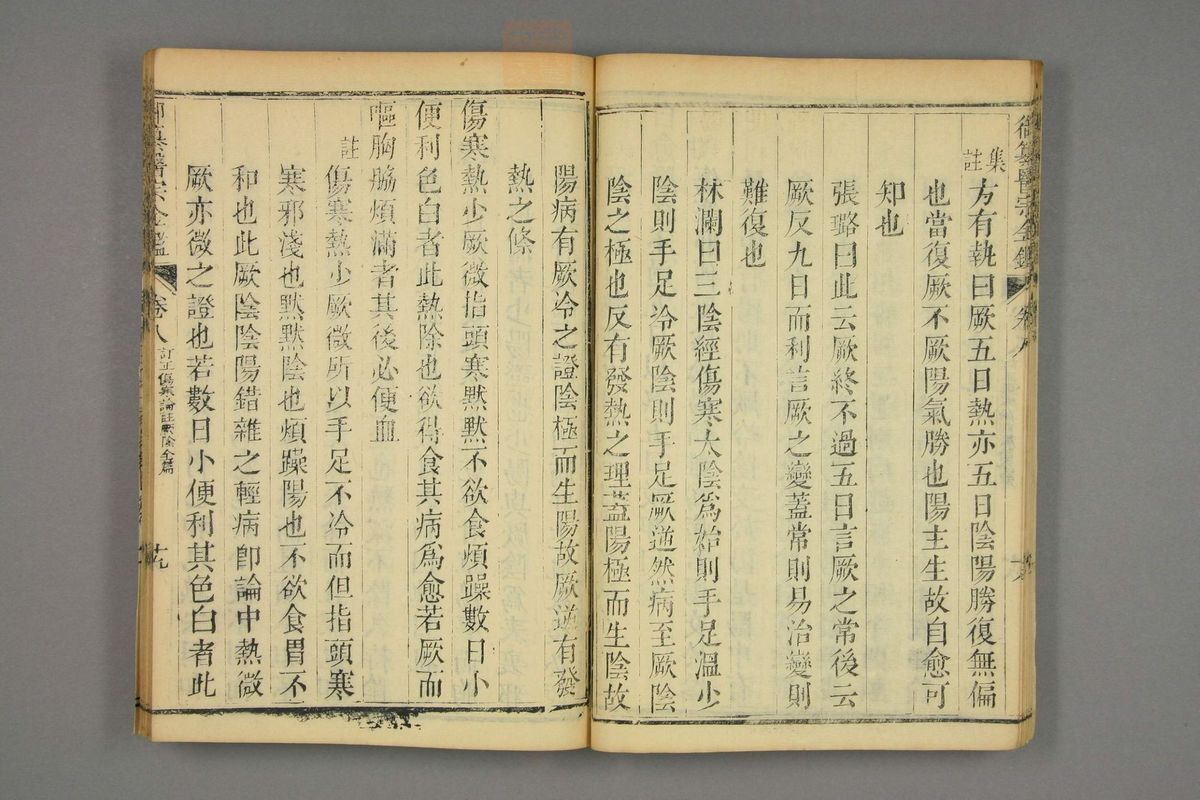 御纂醫宗全鑑
卷八
集註
方有執曰厥五日熱亦五日陰陽勝復無偏
也當復厥不厥陽氣勝也陽主生故自愈可
知也
張璐曰此云厥終不過五日言厥之常後云
厥反九日而利言厥之變蓋常則易治變則
難復也
林瀾曰三陰經傷寒太陰爲始則手足溫少
陰則手足冷厥陰則手足厥逆然病至厥陰
陰之極也反有發熱之理蓋陽極而生陰故
陽病有厥冷之證陰極而生陽故厥逆有發
熱之條
傷寒熱少厥微指頭寒黙黙不欲食煩躁數日小
便利色白者此熱除也欲得食其病爲愈若厥而
嘔胸脇煩滿者其後必便血
註
傷寒熱少厥微所以手足不冷而但指頭寒
寒邪淺也黙黙陰也煩躁陽也不欲食胃不
和也此厥陰陰陽錯雜之輕病卽論中熱微
厥亦微之證也若數日小便利其色白者此
御纂醫宗全鑑
卷八
訂正傷寒論註厥陰全篇
廿九